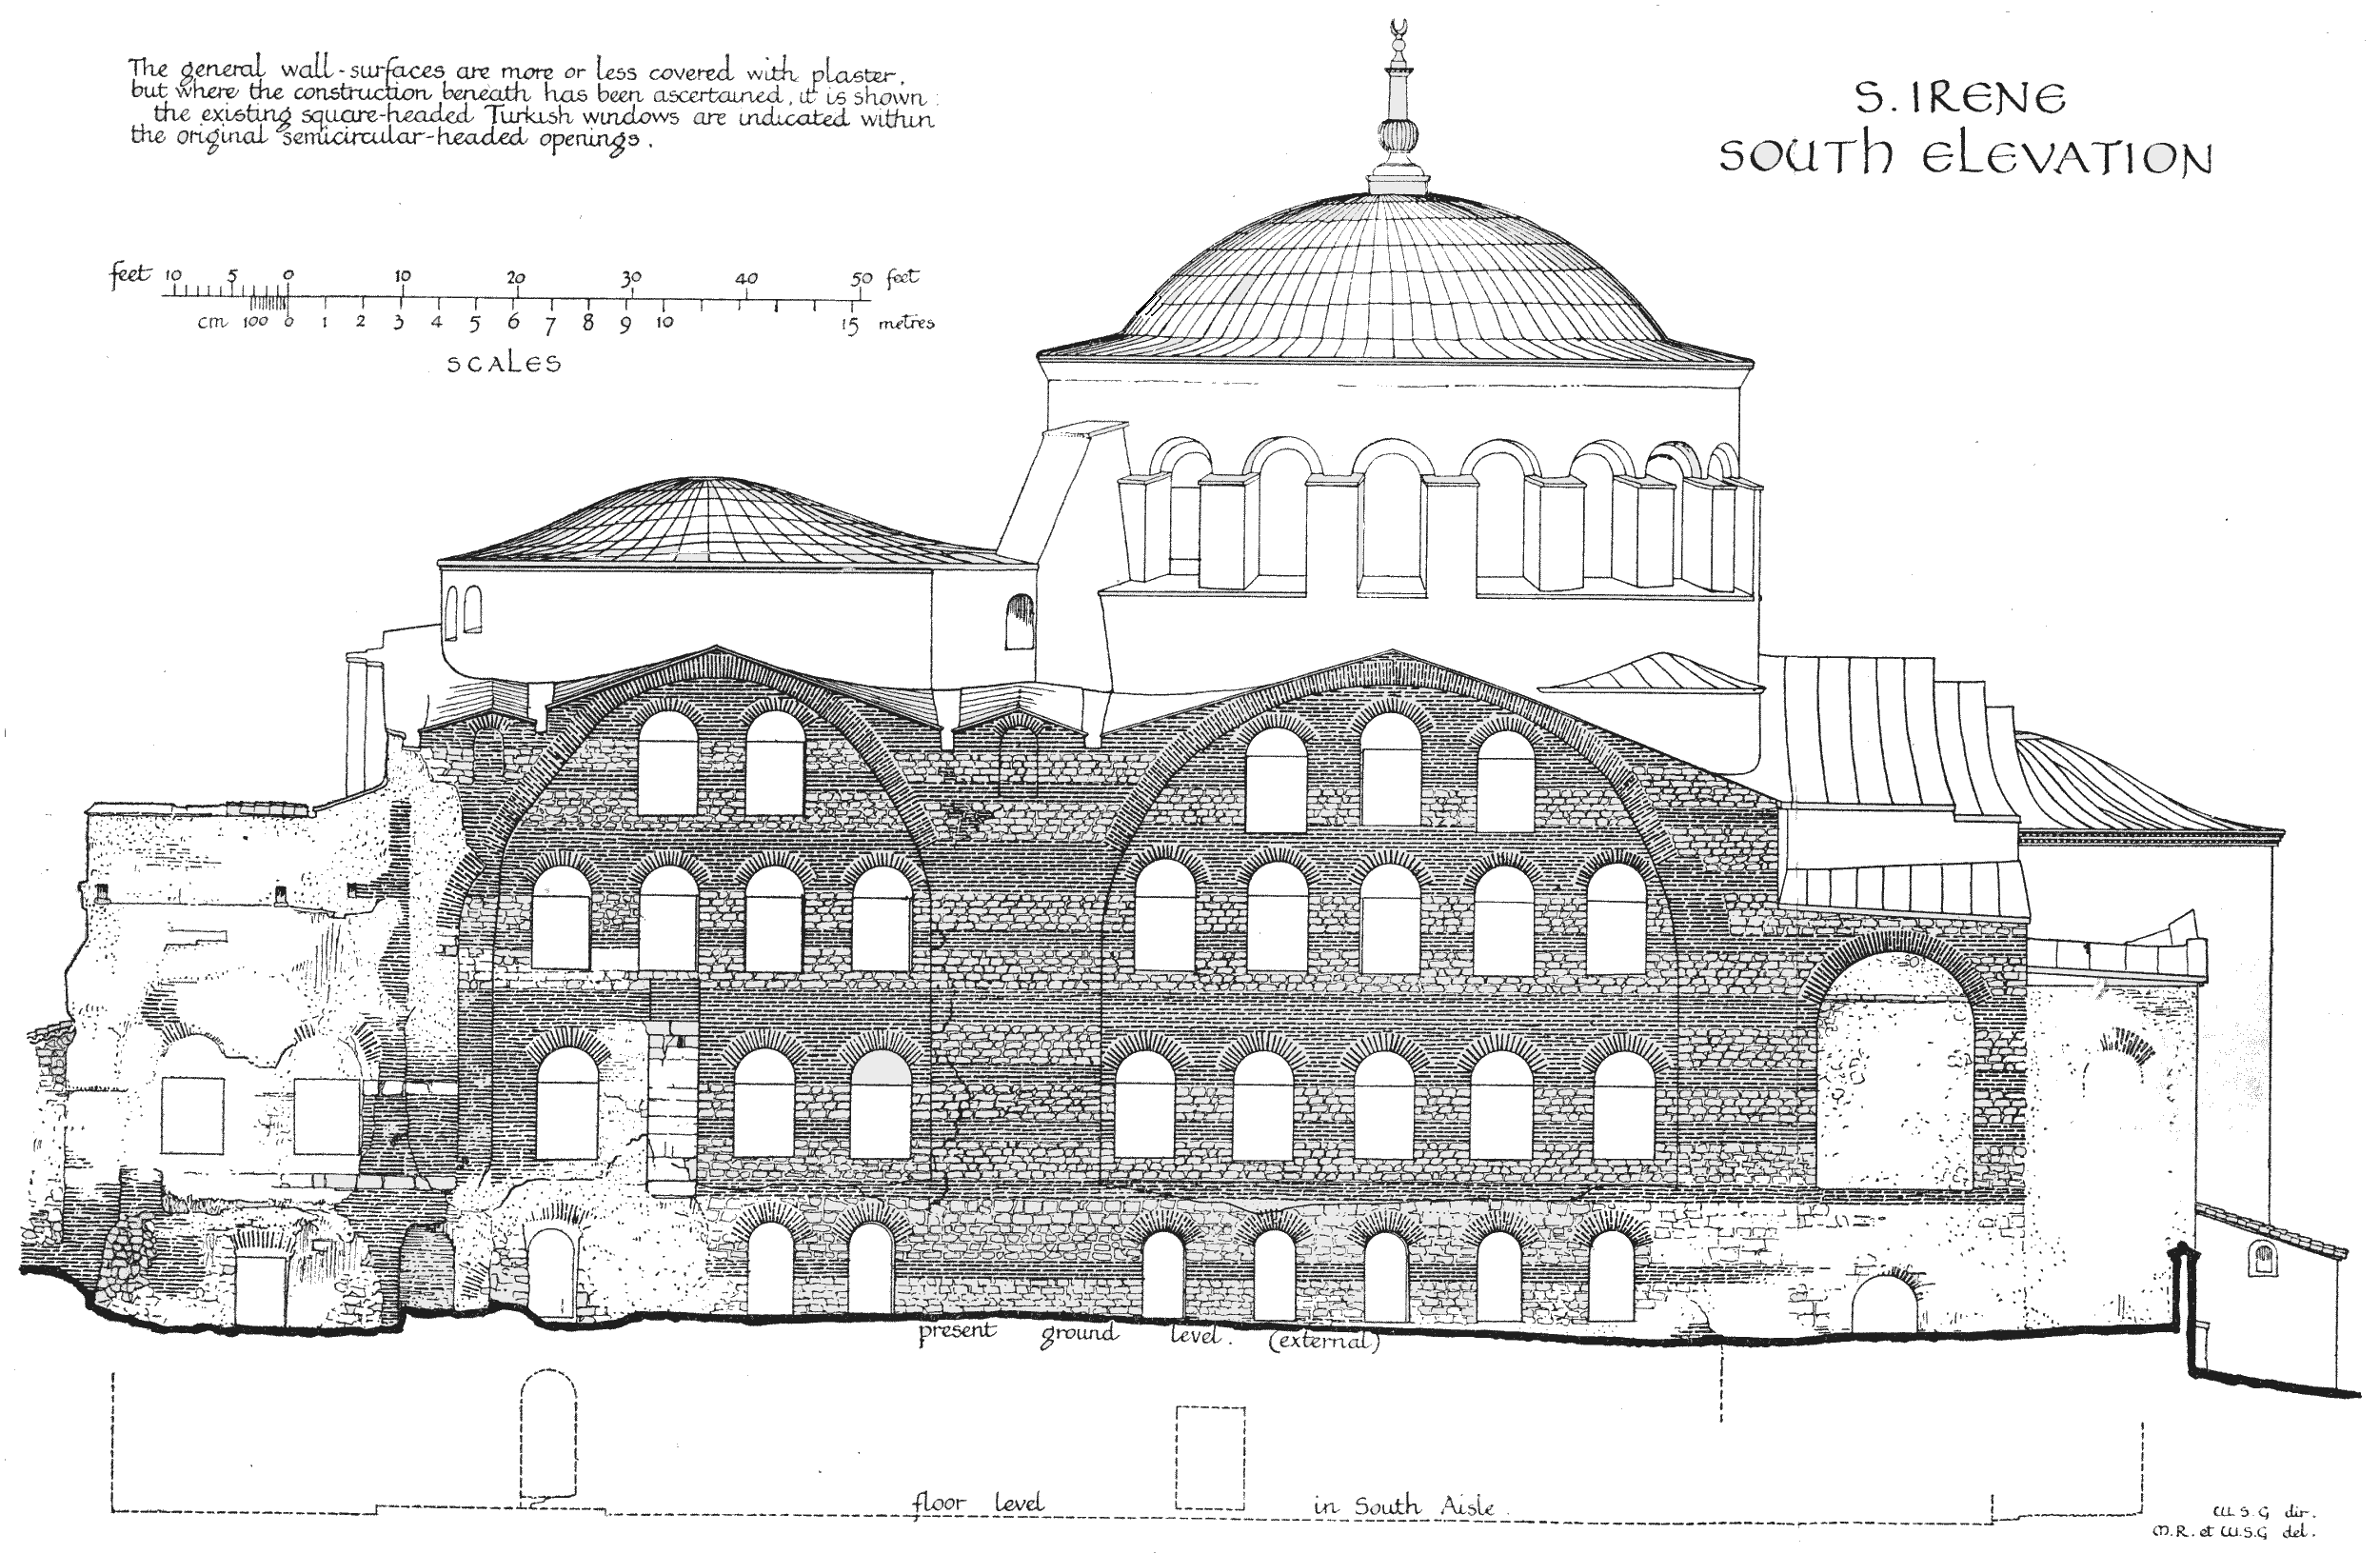 The general wall-surfaces are more or less covered with plaster,
but where the construction beneath has been ascertained, it is shown:
the existing square-headed Turkish windows are indicated within
the original semicircular-headed openings.
S. IRENE
SOUTH ELEVATION
feet 10 5 0 10 20 30 40 50 feet
cm 100 0 1 2 3 4 5 6 7 8 9 10 15 metres
SCALES
present ground level. (external)
floor level in South Aisle.
W.S.G dir.
M.R. et W.S.G del.